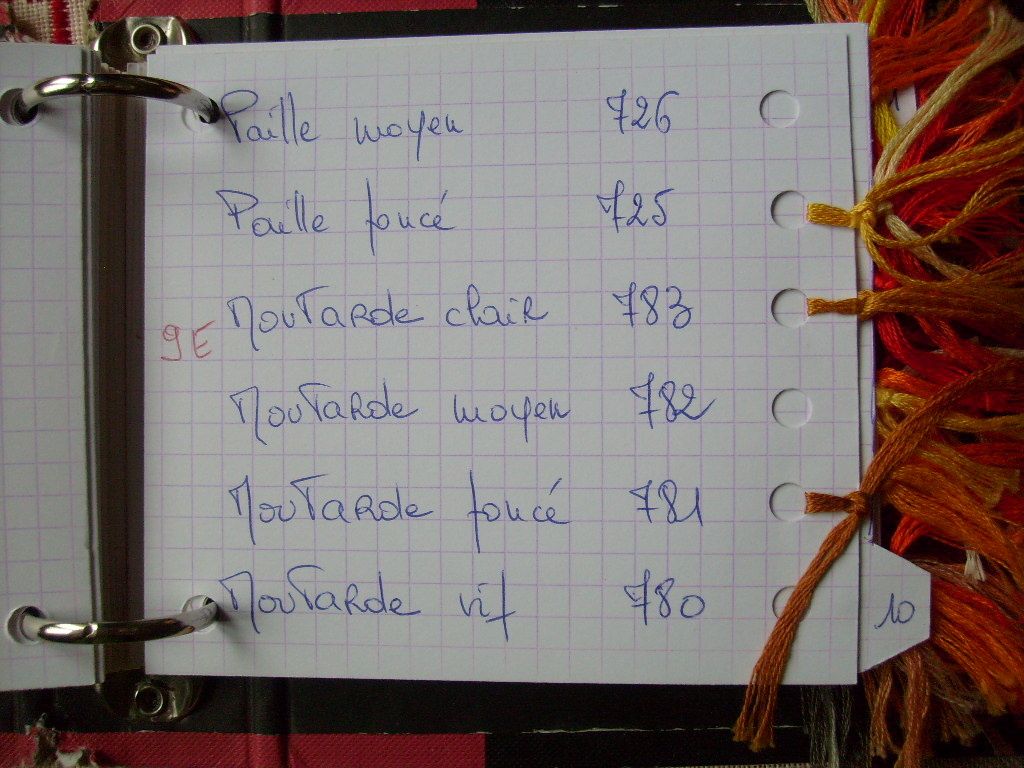 Paille moyen 726
Paille foncé 725
Moutarde clair 783
9E
Moutarde moyen 782
Moutarde foncé 781
Moutarde vif 780
10